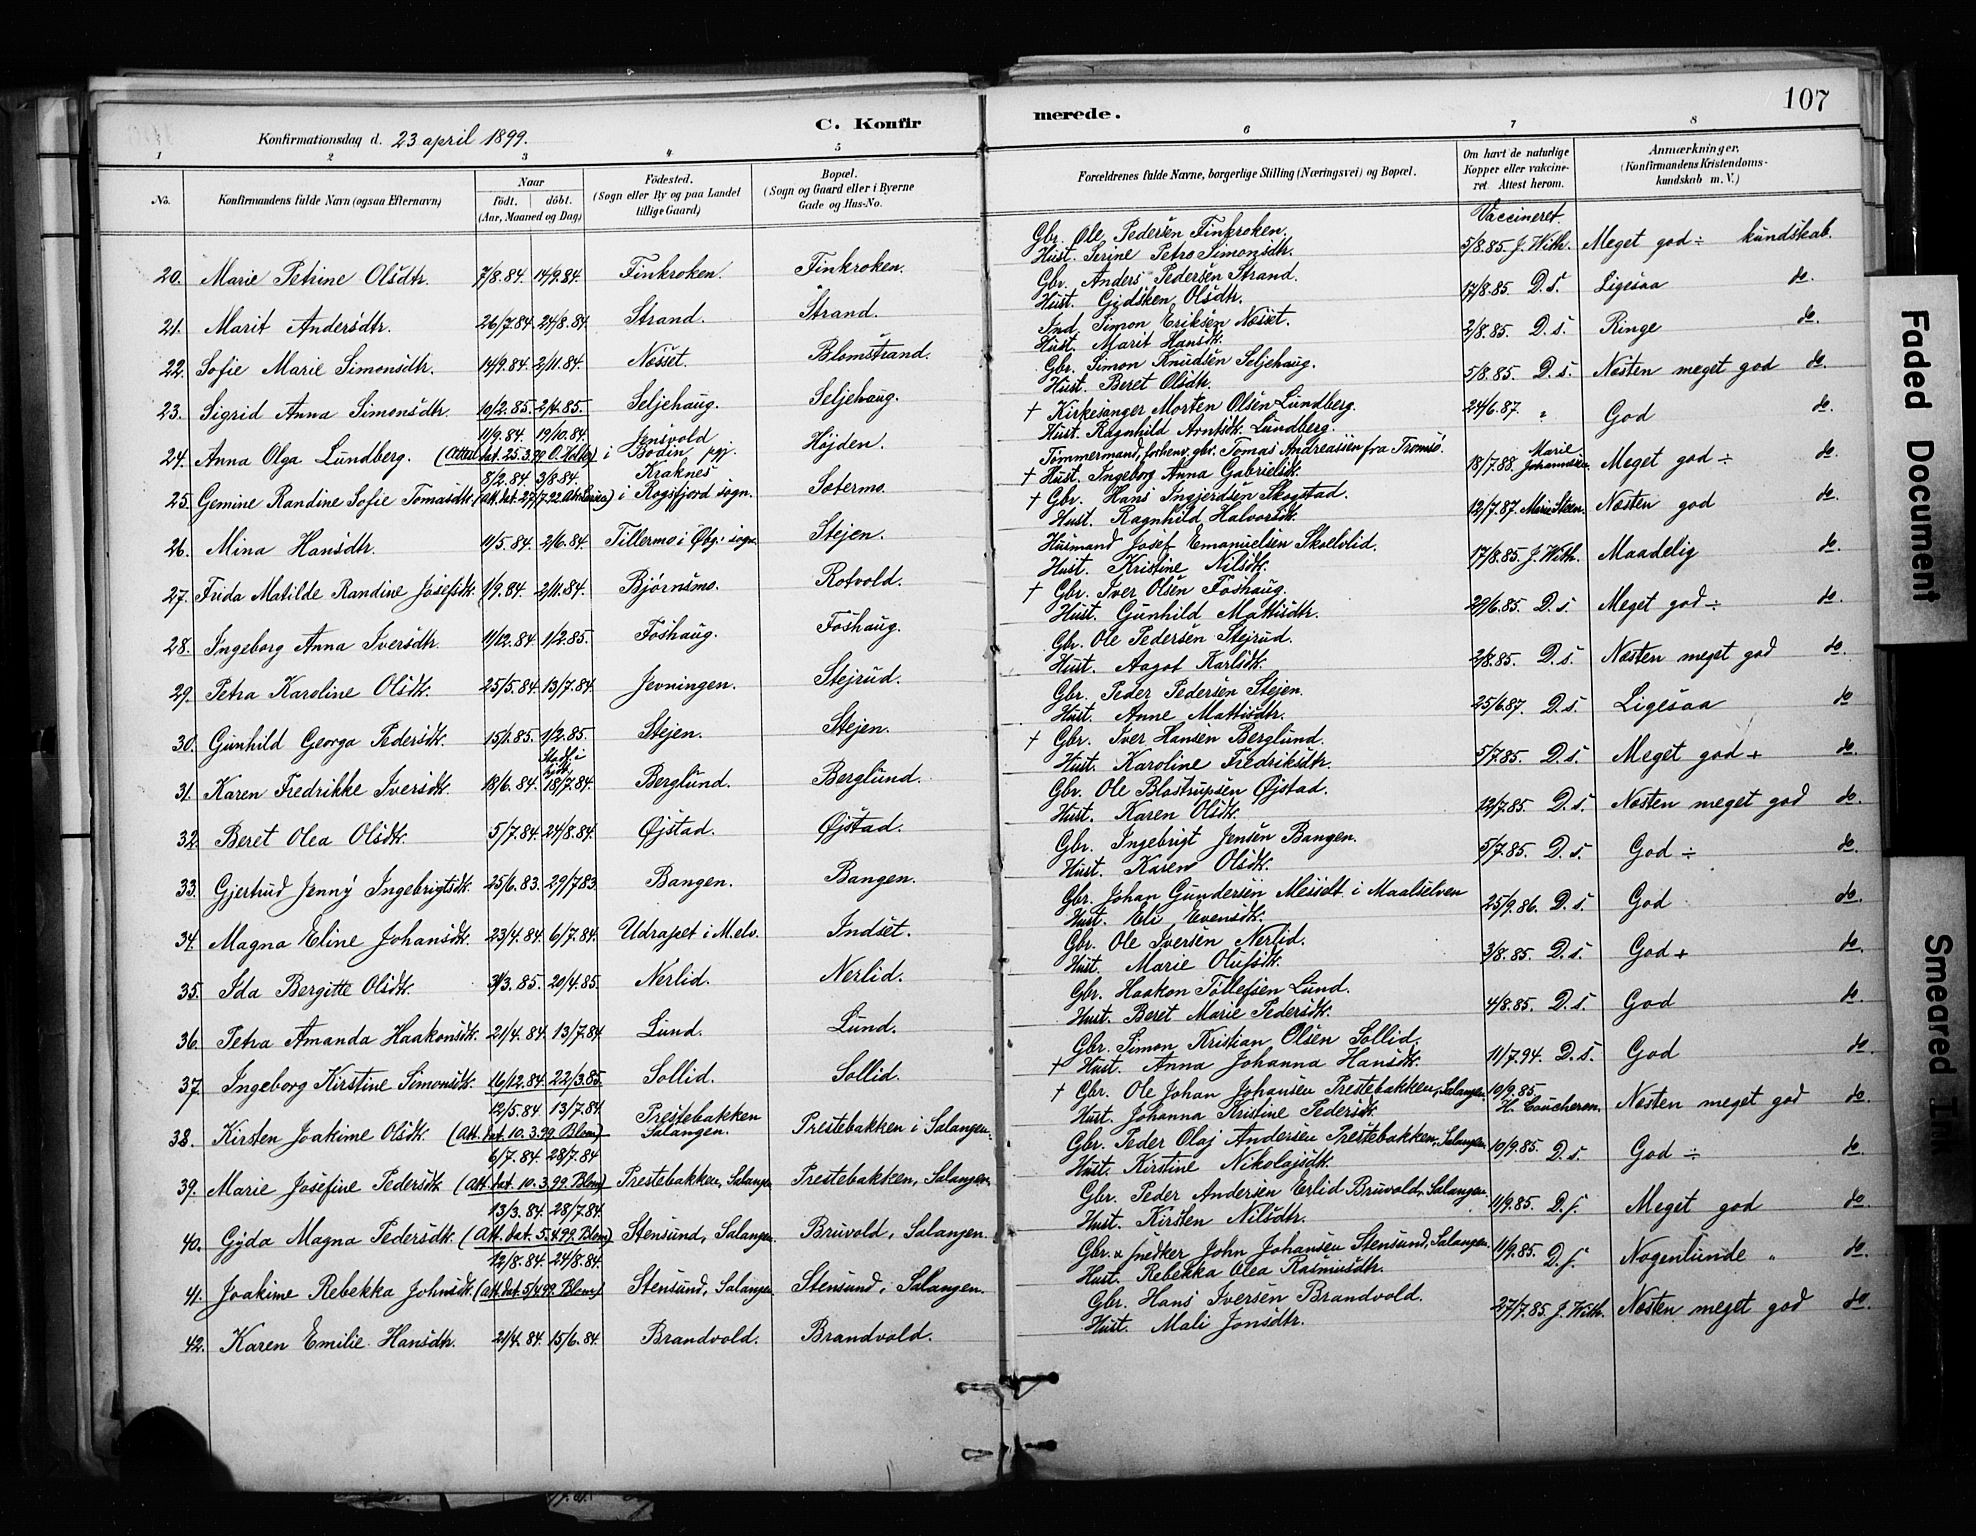 107
C. Konfirmerede.
Konfirmationsdag d. 23 april 1899.
1 2 3 4 5 6 7 8
No. Konfirmandens fulde Navn (ogsaa Efternavn) Naar født. døbt. (Aar, Maaned og Dag) Fødested. (Sogn eller By og paa Landet tillige Gaard) Bopæl. (Sogn og Gaard eller i Byerne Gade og Hus-No. Forældrenes fulde Navne, borgerlige Stilling (Næringsvei) og Bopæl. Om havt de naturlige Kopper eller vakcineret Attest herom. Anmærkninger. (Konfirmandens Kristendomskundskab m. V.)
Vaccineret.
20. Marie Petrine Olsdtr. 7/8.84. 14/9.84. Finkroken. Finkroken. Gbr. Ole Pedersen Finkroken. Hust. Serine Petra Simonsdtr. 5/8.85. J. With. Meget god ÷ kundskab.
21. Marit Andersdtr. 26/7.84. 24/8.84. Strand. Strand. Gbr. Anders Pedersen Strand. Hust. Gjdsken Olsdtr. 17/8.85. D. s. Ligesaa do.
22. Sofie Marie Simonsdtr. 14/9.84. 2/11.84. Nesset. Blomstrand. Ind. Simon Eriksen Neset. Hust. Marit Hansdt. 2/8.85. D. s. Ringe do.
23. Sigrid Anna Simonsdtr. 10/2.85. 2/4.85. Seljehaug. Seljehaug. Gbr. Simon Knudsen Seljehaug. Hust. Beret Olsdtr. 5/8.85. D. s. Næsten meget god do.
24. Anna Olga Lundberg. 11/9.84. 19/10.84. (Attest dat. 25.3.90 O. Holler) Jensvold i Bodin pgj. Højden. † Kirkesanger Morten Olsen Lundberg. Hust. Ragnhild Arntsdt. Lundberg. 24/6.87. " God do.
25. Gemine Randine Sofie Tomasdt. 8/2.84. 3/8.84. Kraknes i Rogsfjord sogn. Sætermo. Tømmermand, forhenv. gbr. Tomas Andreassen fra Tromsø. † Hust. Ingeborg Anna Gabrielsdt. 18/7.88. Marie Johannesen. Meget god ÷ do.
26. Mina Hansdtr. 11/5.84. 2/6.84. Tillermo i Øbg. sogn. Stejen. † Gbr. Hans Ingjerdsen Skogstad. Hust. Ragnhild Halvorsdt. 12/7.87. Marie Steen. Næsten god do.
27. Frida Matilde Randine Josefsdt. 1/9.84. 2/11.84. Bjørnsmo. Rotvold. Husmand Josef Emanuelsen Skoelvlid. Hust. Kristine Nilsdt. 17/8.85. J. With. Maadelig do.
28. Ingeborg Anna Iversdtr. 11/12.84. 1/2.85. Foshaug. Foshaug. † Gbr. Iver Olsen Foshaug. Hust. Gunhild Mattisdtr. 29/6.85. D. s. Meget god ÷ do.
29. Petra Karoline Olsdt. 25/5.84. 13/7.84. Jevningen. Stejrud. Gbr. Ole Pedersen Stejrud. Hust. Aagot Karlsdt. 2/8.85. D. s. Næsten meget god do.
30. Gunhild Georga Pedersdt. 15/1.85. 1/2.85. Stejen. Stejen. Gbr. Peder Pedersen Stejen. Hust. Anne Mattisdtr. 25/6.87. D. s. Ligesaa do
31. Karen Fredrikke Iversdt. 18/6.84. 18/7.84. Berglund. Berglund. † Gbr. Iver Hansen Berglund. Hust. Karoline Fredriksdtr. 5/7.85. D. s. Meget god + do.
32. Beret Olea Olsdt. 5/7.84. 24/8.84. Øjstad. Øjstad. Gbr. Ole Blostrupsen Øjstad. Hust. Karen Olsdt. 12/7.85. D. s. Næsten meget god do.
33. Gjertrud Jenny Ingebrigtsdt. 25/6.83. 29/7.83. Bangen. Bangen. Gbr. Ingebrigt Jensen Bangen. Hust. Karen Olsdt. 5/7.85. D. s. God ÷ do.
34. Magna Eline Johansdt. 23/4.84. 6/7.84. Udrapet i M.elv. Indset. Gbr. Johan Gundersen Messelt i Maalselven Hust. Eli Evensdt. 25/9.86. D. s. God do.
35. Ida Bergitte Olsdt. 31/3.85. 20/4.85. Nerlid. Nerlid. Gbr. Ole Iversen Nerlid. Hust. Marie Olufsdt. 3/8.85. D. s. God + do
36. Petra Amanda Haakonsdt. 21/4.84. 13/7.84 Lund. Lund. Gbr. Haakon Tollefsen Lund. Hust. Beret Marie Pedersdt. 4/8.85. D. s. God do
37. Ingeborg Kirstine Simonsdt. 16/12.84. 22/3.85. Sollid. Sollid. Gbr. Simon Kristian Olsen Sollid. † Hust. Anna Johanna Hansdt. 11/7.94. D. s. God do.
38. Kirsten Joakime Olsdt. 12/5.84. 13/7.84. (Att. dat. 10.3.99 Blom) Prestebakken Salangen. Prestebakken i Salangen. † Gbr. Ole Johan Johansen Prestebakken, Salangen Hust. Johanna Kristine Pedersdt. 10/9.85. H. Coucheron. Næsten meget god do.
39. Marie Josefine Pedersdt. 6/7.84. 28/7.84 (Att. dat. 10.3.99. Blom) Prestebakken, Salangen Prestebakken, Salangen. Gbr. Peder Olaj Andersen Prestebakken, Salangen Hust. Kirstine Nikolajsdt. 10/9.85. D. s God ÷ do.
40. Gyda Magna Pedersdt. 13/3.84. 28/7.84 (Att. dat. 5.4.99. Blom) Stensund, Salangen. Bruvold, Salangen. Gbr. Peder Andersen Erlid Bruvold, Salangen. Hust. Kirsten Nilsdtr. 11/9.85. D. s. Meget god do.
41. Joakime Rebekka Johnsdt. 12/8.84. 24/8.84. (Att. dat. 5/4.99. Blom) Stensund, Salangen Stensund, Salangen. Gbr. & snedker John Johansen Stensund, Salangen. Hust. Rebekka Olea Rasmusdtr. 11/9.85. D. s. Nogenlunde " do.
42. Karen Emilie Hansdtr. 21/4.84. 15/6.84. Brandvold. Brandvold. Gbr. Hans Iversen Brandvold. Hust. Mali Jonsdtr. 27/7.85. J. With. Næsten meget god do.
Faded Document
Smeared Ink